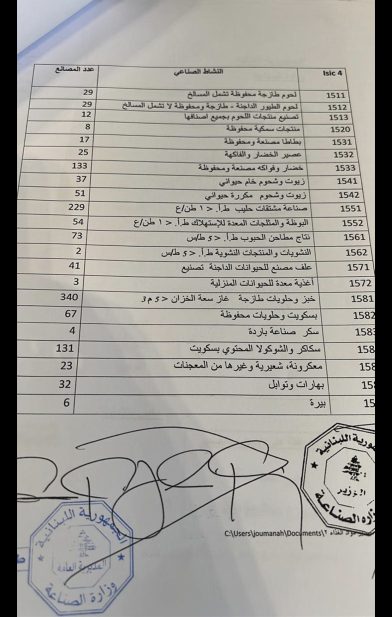 Isic 4 النشاط الصناعي عدد المصانع
1511 لحوم طازجة محفوظة تشمل المسالخ 29
1512 لحوم الطيور الداجنة - طازجة ومحفوظة لا تشمل المسالخ 29
1513 تصنيع منتجات اللحوم بجميع اصنافها 12
1520 منتجات سمكية محفوظة 8
1531 بطاطا مصنعة ومحفوظة 17
1532 عصير الخضار والفاكهة 25
1533 خضار وفواكه مصنعة ومحفوظة 133
1541 زيوت وشحوم خام حيواني 37
1542 زيوت وشحوم مكررة حيواني 51
1551 صناعة مشتقات حليب ط.أ. < ١ طن/ع 229
1552 البوظة والمثلجات المعدة للإستهلاك ط.أ. < ١ طن/ع 54
1561 نتاج مطاحن الحبوب ط.أ. < ٥ ط/س 73
1562 النشويات والمنتجات النشوية ط.أ. < ٥ ط/س 2
1571 علف مصنع للحيوانات الداجنة تصنيع 41
1572 أغذية معدة للحيوانات المنزلية 3
1581 خبز وحلويات طازجة غاز سعة الخزان < ٥ م3 340
1582 بسكويت وحلويات محفوظة 67
1583 سكر صناعة باردة 4
158 سكاكر والشوكولا المحتوي بسكويت 131
158 معكرونة، شعيرية وغيرها من المعجنات 23
158 بهارات وتوابل 32
15 بيرة 6
الجمهورية اللبنانية
الوزير
وزارة الصناعة
الجمهورية اللبنانية
المديرية العامة
وزارة الصناعة
C:\Users\joumanah\Documents\